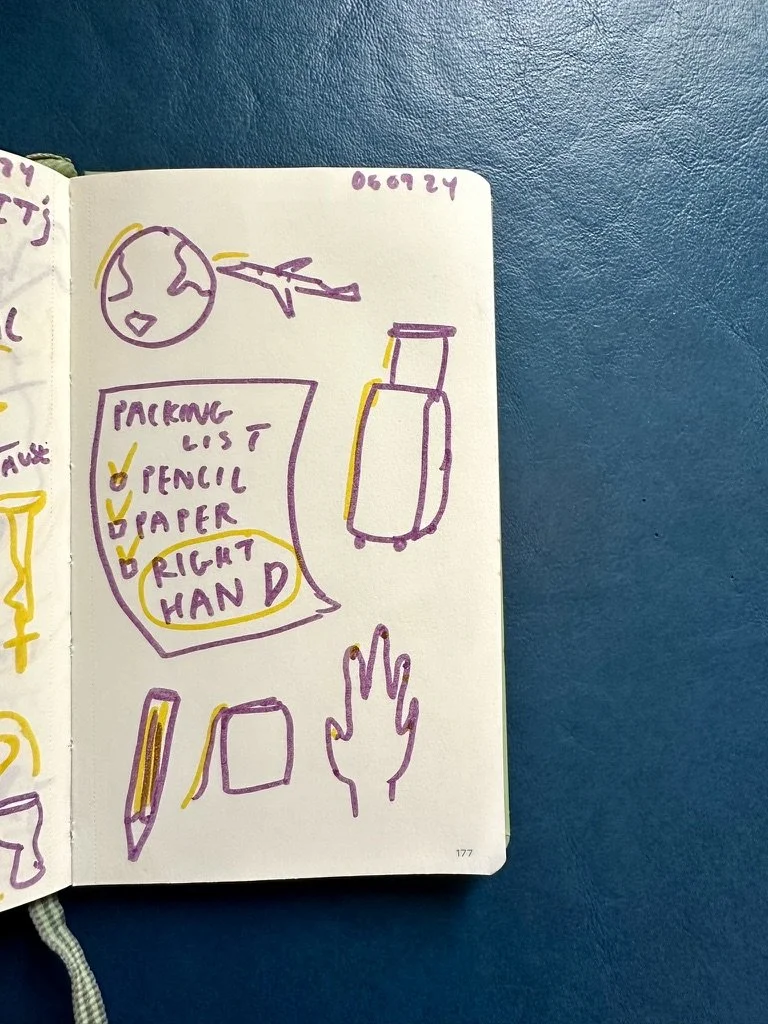 24
IT's
060924
PACKING
LIST
PENCIL
PAPER
RIGHT
HAND
177